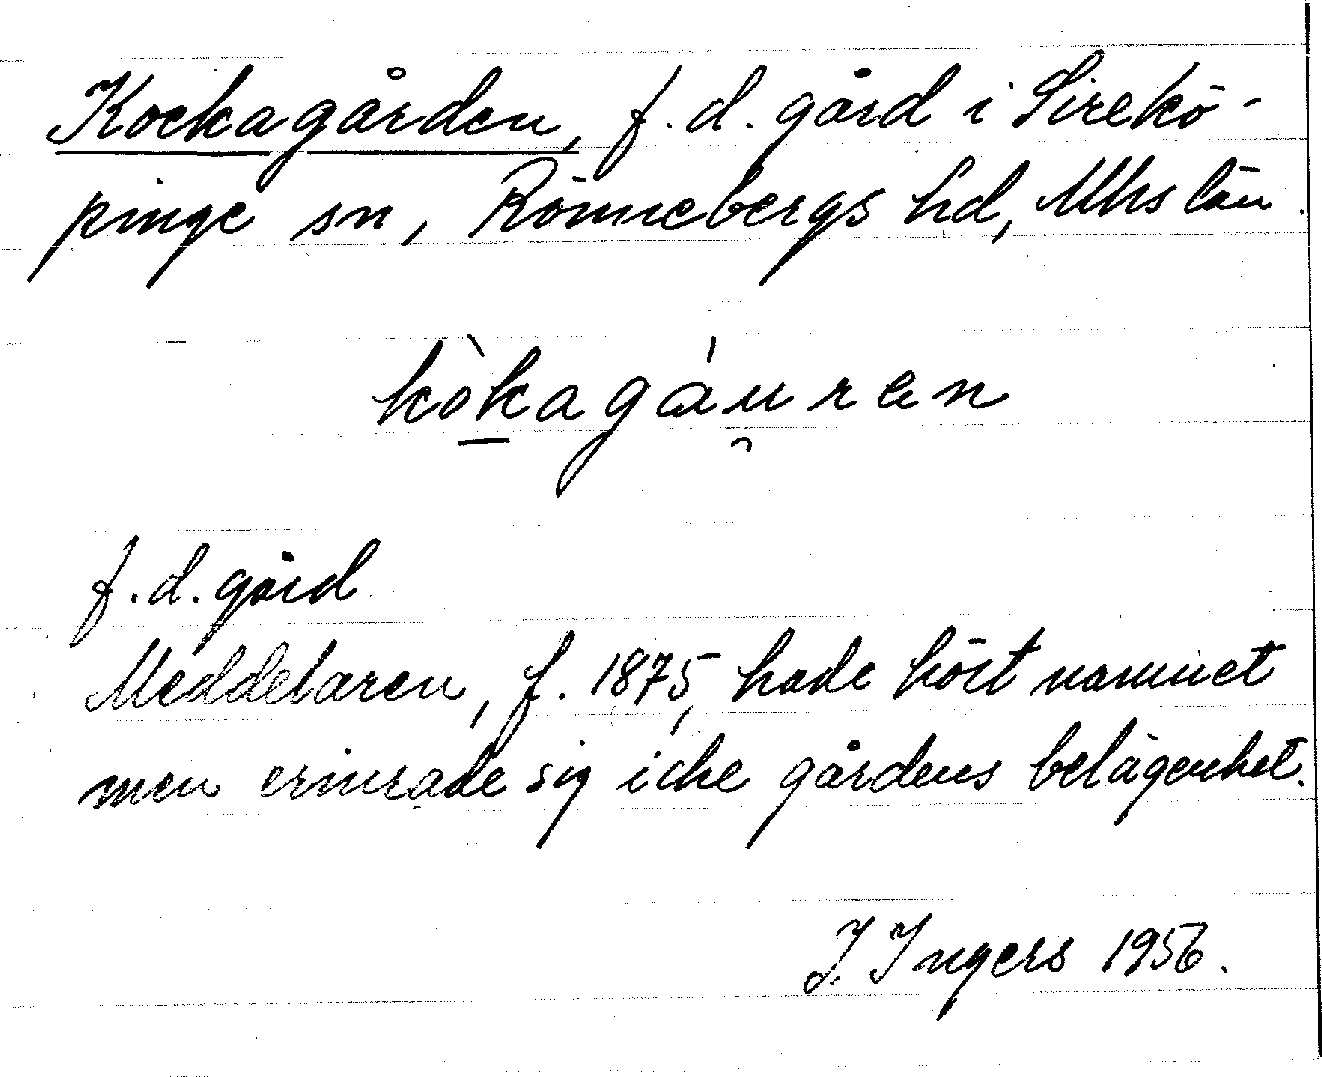 Kockagården, f.d. gård i Sirekö-
pinge sn, Rönnebergs hd, Mhs län.
kòkagáu̯ren
f.d. gård
Meddelaren, f. 1875, hade hört namnet
men erinrade sig icke gårdens belägenhet.
I. Ingers 1956.